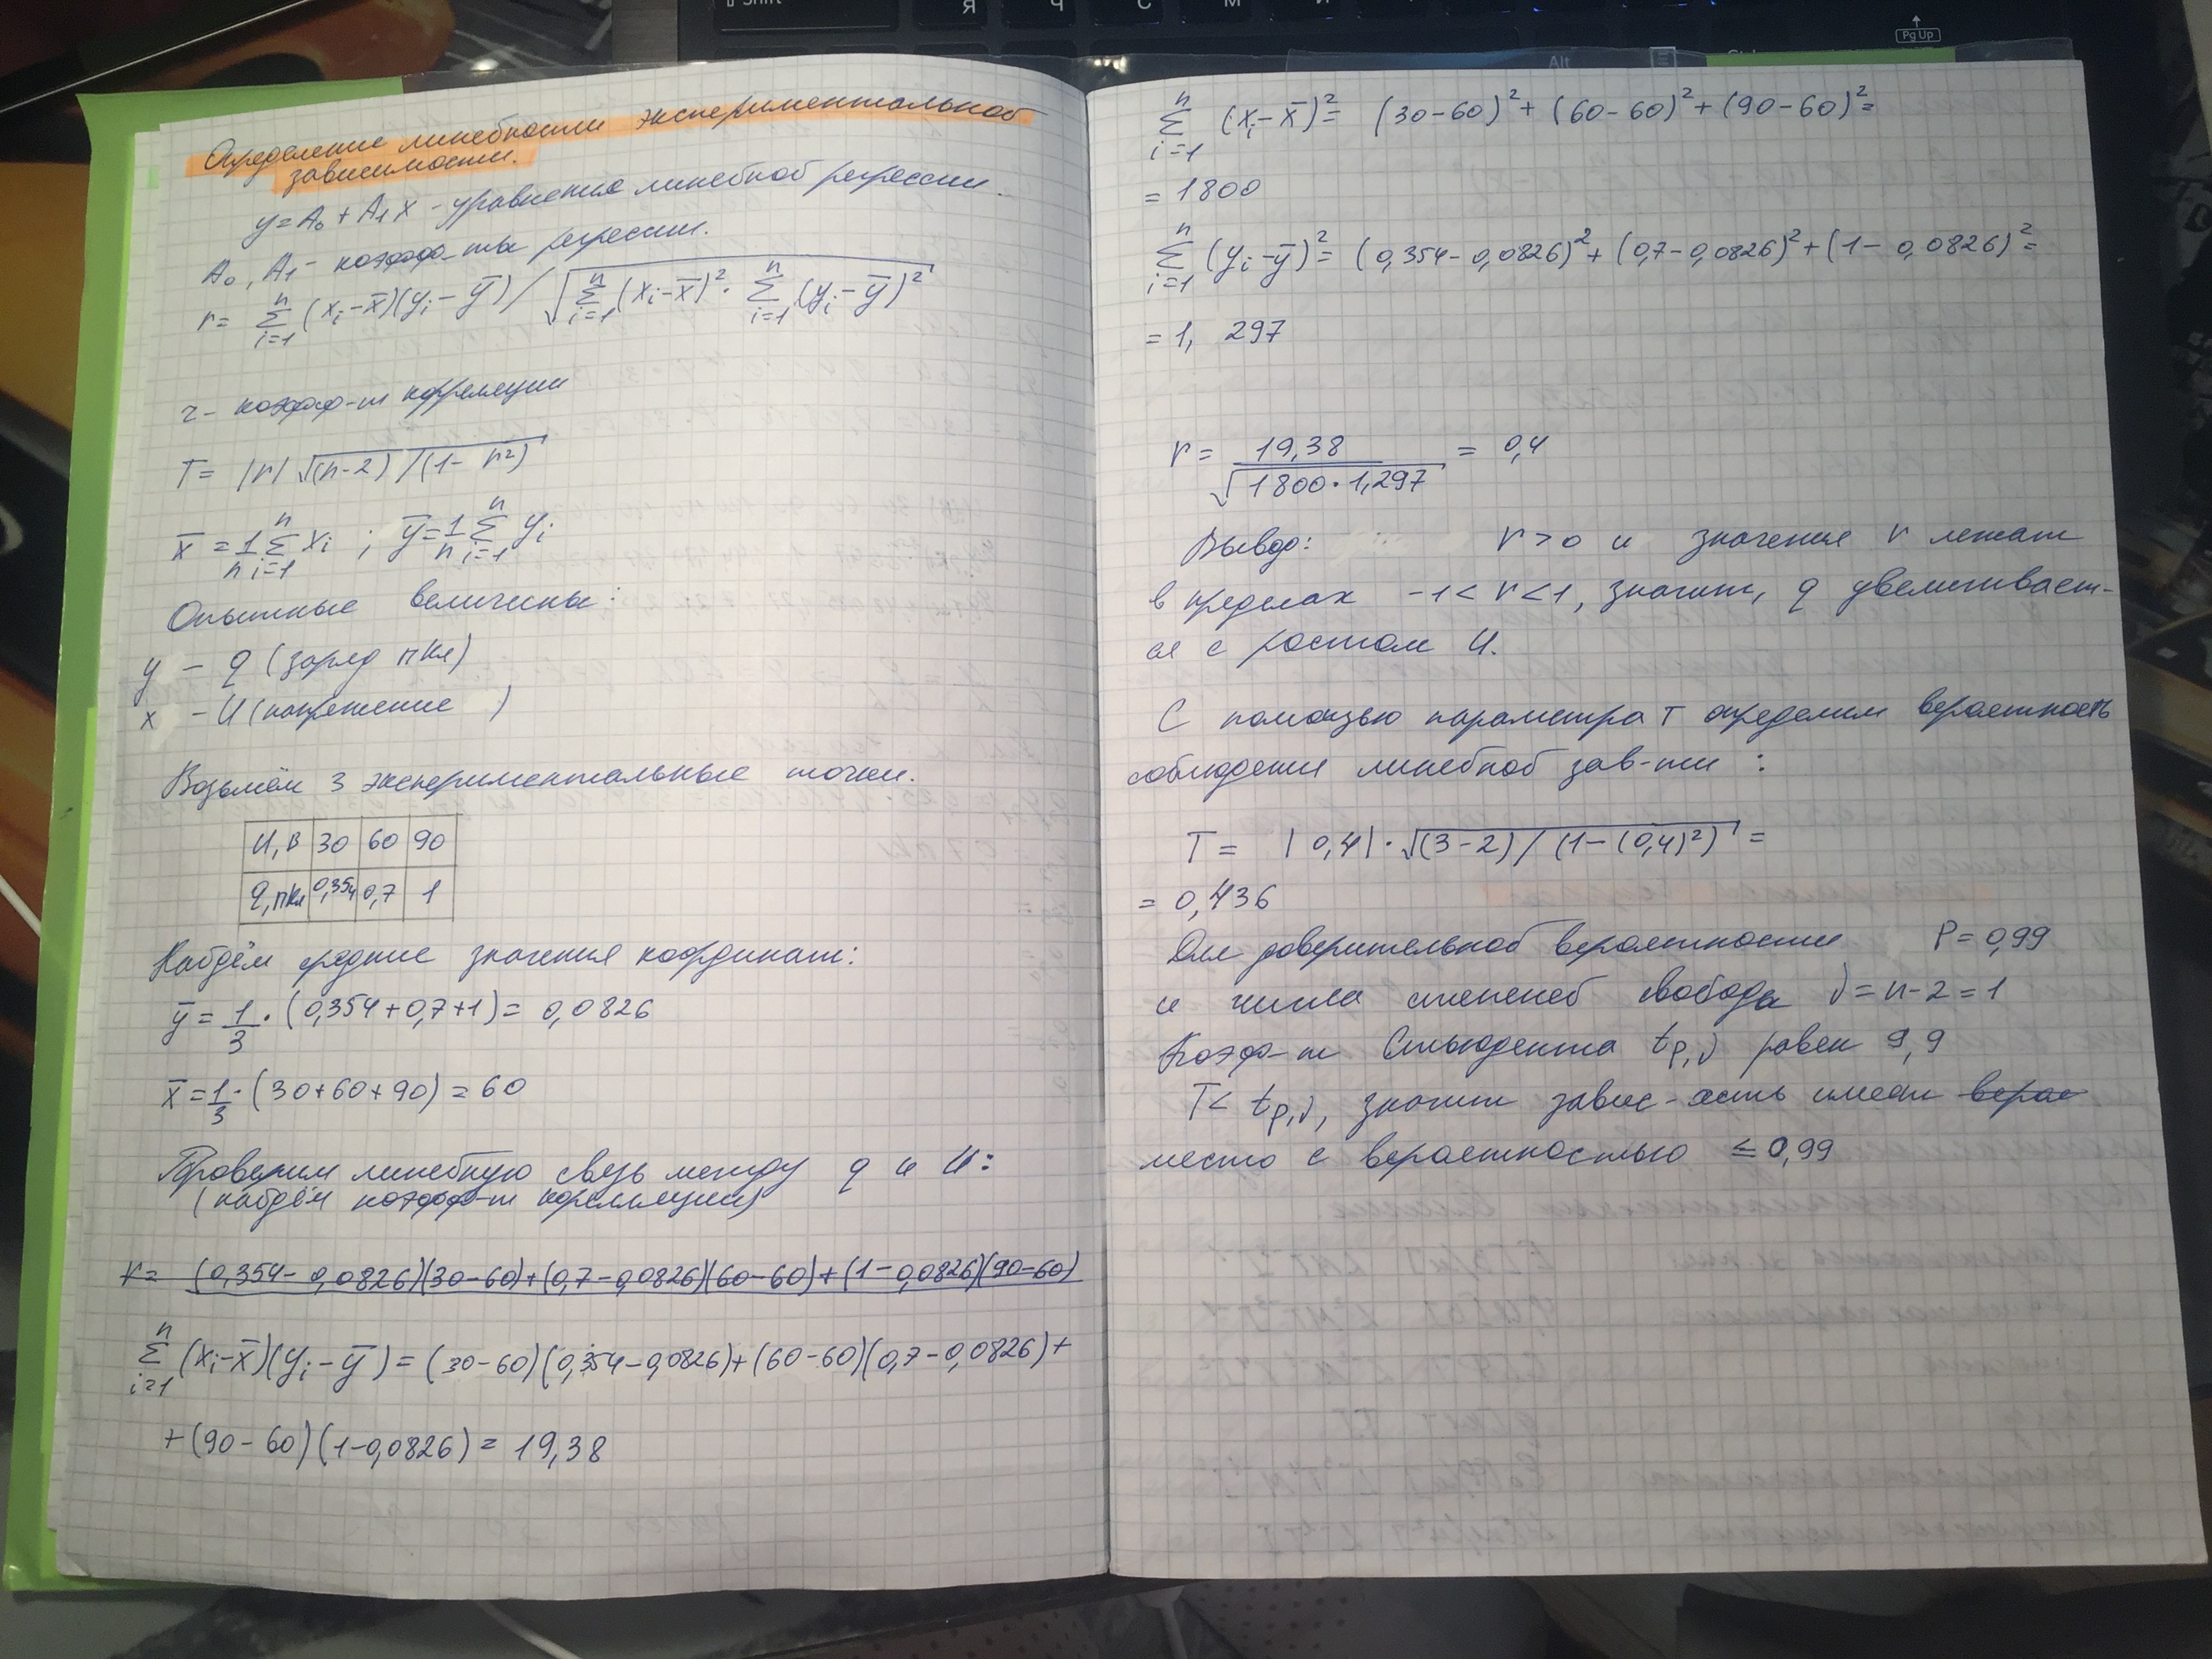 Определение линейности экспериментальной
зависимости.
y = A₀ + A₁x - уравнение линейной регрессии.
A₀, A₁ - коэфф-ты регрессии.
r = Σⁿᵢ₌₁ (xᵢ - x̄)(yᵢ - ȳ) / √(Σⁿᵢ₌₁ (xᵢ - x̄)² · Σⁿᵢ₌₁ (yᵢ - ȳ)²)
r - коэфф-т корреляции
T = |r| √((n-2)/(1-r²))
x̄ = 1/n Σⁿᵢ₌₁ xᵢ ; ȳ = 1/n Σⁿᵢ₌₁ yᵢ
Опытные величины:
y - q (заряд пКл)
x - U (напряжение )
Возьмём 3 экспериментальные точки.
U, В 30 60 90
q, пКл 0,354 0,7 1
Найдём средние значения координат:
ȳ = 1/3 · (0,354 + 0,7 + 1) = 0,0826
x̄ = 1/3 · (30 + 60 + 90) = 60
Проверим линейную связь между q и U:
(найдём коэфф-т корреляции)
r = (0,354 - 0,0826)(30-60) + (0,7 - 0,0826)(60-60) + (1 - 0,0826)(90-60)
Σⁿᵢ₌₁ (xᵢ - x̄)(yᵢ - ȳ) = (30-60)(0,354-0,0826) + (60-60)(0,7-0,0826) +
+ (90-60)(1-0,0826) = 19,38
Σⁿᵢ₌₁ (xᵢ - x̄)² = (30-60)² + (60-60)² + (90-60)² =
= 1800
Σⁿᵢ₌₁ (yᵢ - ȳ)² = (0,354 - 0,0826)² + (0,7 - 0,0826)² + (1 - 0,0826)² =
= 1, 297
r = 19,38 / √(1800 · 1,297) = 0,4
Вывод: r > 0 и значения r лежат
в пределах -1 < r < 1, значит, q увеличивает-
ся с ростом U.
С помощью параметра T определим вероятность
соблюдения линейной зав-ти :
T = |0,4| · √((3-2)/(1-(0,4)²)) =
= 0,436
Для доверительной вероятности P = 0,99
и числа степеней свобода ν = n-2 = 1
Коэф-т Стьюдента tₚ,ν равен 9,9
T < tₚ,ν, значит завис-ость имеет вероя
место с вероятностью ≤ 0,99
Shift
Я Ч С М И
Alt
Pg Up